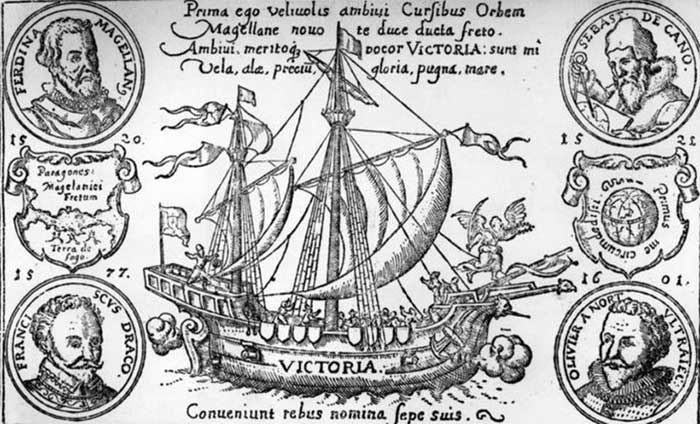 Prima ego veliuolis ambiui Curſibus Orbem
Magellane nouo te duce ducta freto.
Ambiui, meritoq; vocor VICTORIA: sunt mi
Vela, alæ, preciũ, gloria, pugna, mare.
FERDINA MAGELLAN9.
SEBAST. DE CANO.
1520.
1521
Paragones.
Magelanici
Fretum
Terra de
fogo.
Primus me circumdedisti
1577.
1601.
FRANCISCVS DRACO.
OLIVIER A NORT VLTRAIEC:
VICTORIA.
Conueniunt rebus nomina sepe suis.